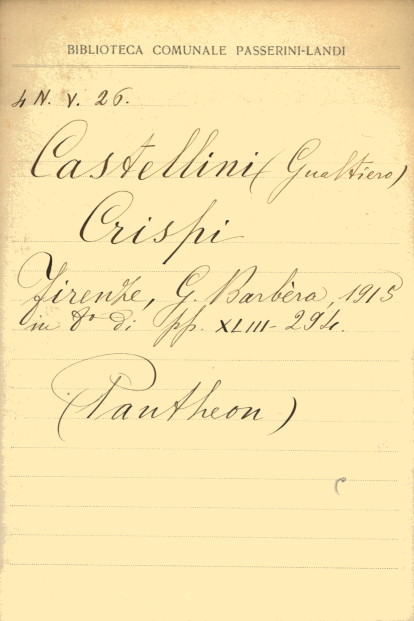 BIBLIOTECA COMUNALE PASSERINI-LANDI
4 N. V. 26.
Castellini (Gualtiero)
Crispi
Firenze, G. Barbèra, 1915
in 8º di pp. XLIII-294.
(Pantheon)
C